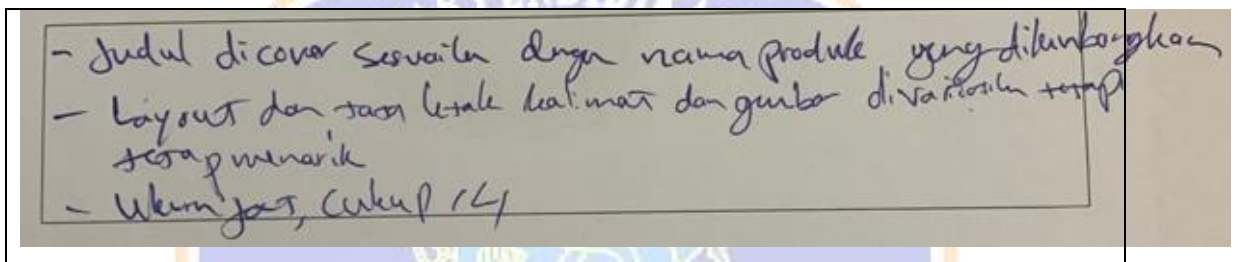 - Judul dicover sesuaikn dengan nama produk yang dikembangkan
- Layout dan tata letak kalimat dan gambar divariasikn tetap
tetap menarik
- Ukuran font, cukup 14